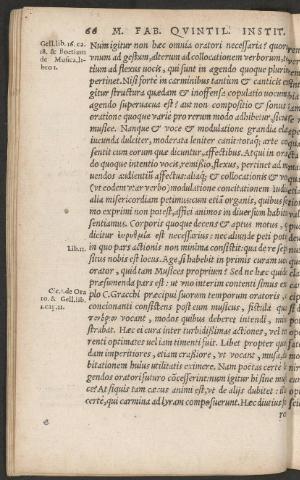 66 M. FAB. QVINTIL. INSTIT.
Gell.lib.16.ca.
18. & Boetium
de Musica, li-
bro 1.
Num igitur non hæc omnia oratori necessaria? quor
unum ad gestum, alterum ad collocationem verborum,
tium ad flexus vocis, qui sunt in agendo quoque plurim
pertinet. Nisi forte in carminibus tantum & canticis
igitur structura quædam & inoffensa copulatio vocum
agendo superuacua est? aut non compositio & sonus
oratione quoque varie pro rerum modo adhibetur, sicut
musice. Nanque & voce & modulatione grandia ela
iucunda dulciter, moderata leniter canit: totaq; arte
sentit cum eorum quæ dicuntur, affectibus. Atqui in ora
do quoque intentio vocis, remissio, flexus, pertinet ad mo
uendos audientiū affectus: aliaq; & collocationis & vo
(vt eodem vtar verbo) modulatione concitationem iudi
alia misericordiam petimus: cum etiā organis, quibus
mo exprimi non potest, affici animos in diuersum habitū
sentiamus. Corporis quoque decens & aptus motus,
dicitur εὐρυθμία est necessarius: nec aliunde peti pote
Lib.11.
in quo pars actionis non minima consistit: qua de re sep
situs nobis est locus. Age, si habebit in primis curam uo
orator, quid tam Musices proprium? Sed ne hæc quide
præsumenda pars est: ut vno interim contenti simus ex
Cic.3. de Ora
to. & Gell. lib.
1.ca.11.
plo C. Gracchi præcipui suorum temporum oratoris,
concionanti consistens post eum musicus, fistula
vocant, modos quibus deberet intendi,
strabat. Hæc ei cura inter turbidissimas actiones, vel
renti optimates vel iam timenti fuit. Libet propter quo
dam imperitiores, etiam crassiore, vt vocant, musa,
bitationem huius utilitatis eximere. Nam poëtas certè
gendos oratori futuro cōcesserint: num igitur hi sine mu
ce? At si quis tam cæcus animi est, vt de alijs dubitet:
certè, qui carmina ad lyram composuerunt. Hæc diutius
e